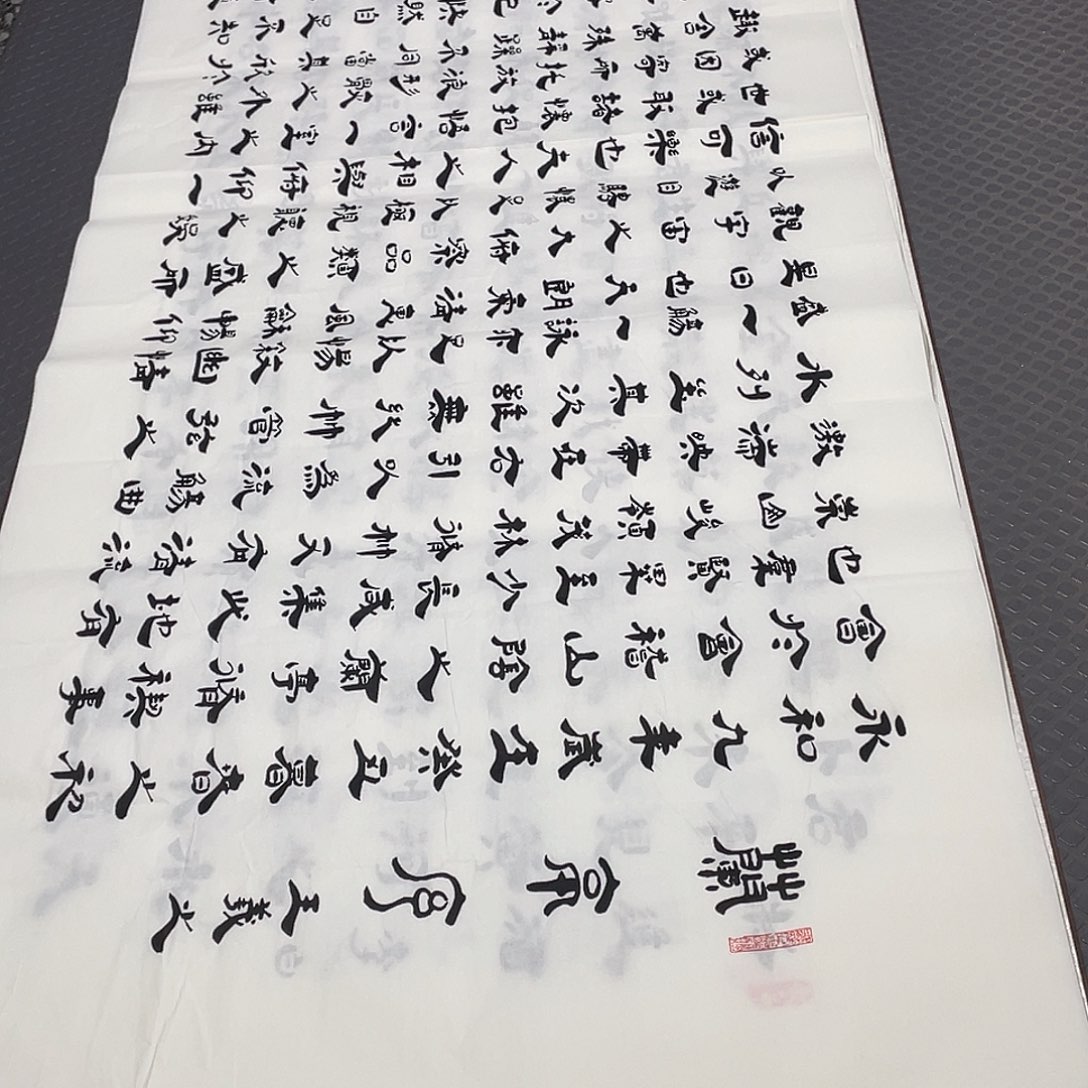 蘭亭序 王羲之
永和九年歲在癸丑暮春之初
會於會稽山陰之蘭亭脩禊事
也羣賢畢至少長咸集此地有
崇山峻領茂林脩竹又有清流
激湍映帶左右引以為流觴曲
水列坐其次雖無絲竹管弦之
盛一觴一詠亦足以暢敘幽情
是日也天朗氣清惠風和暢仰
觀宇宙之大俯察品類之盛所
以遊目騁懷足以極視聽之娛
信可樂也夫人之相與俯仰一
世或取諸懷抱悟言一室之內
或因寄所託放浪形骸之外雖
趣舍萬殊靜躁不同當其欣於
己快然自足不知